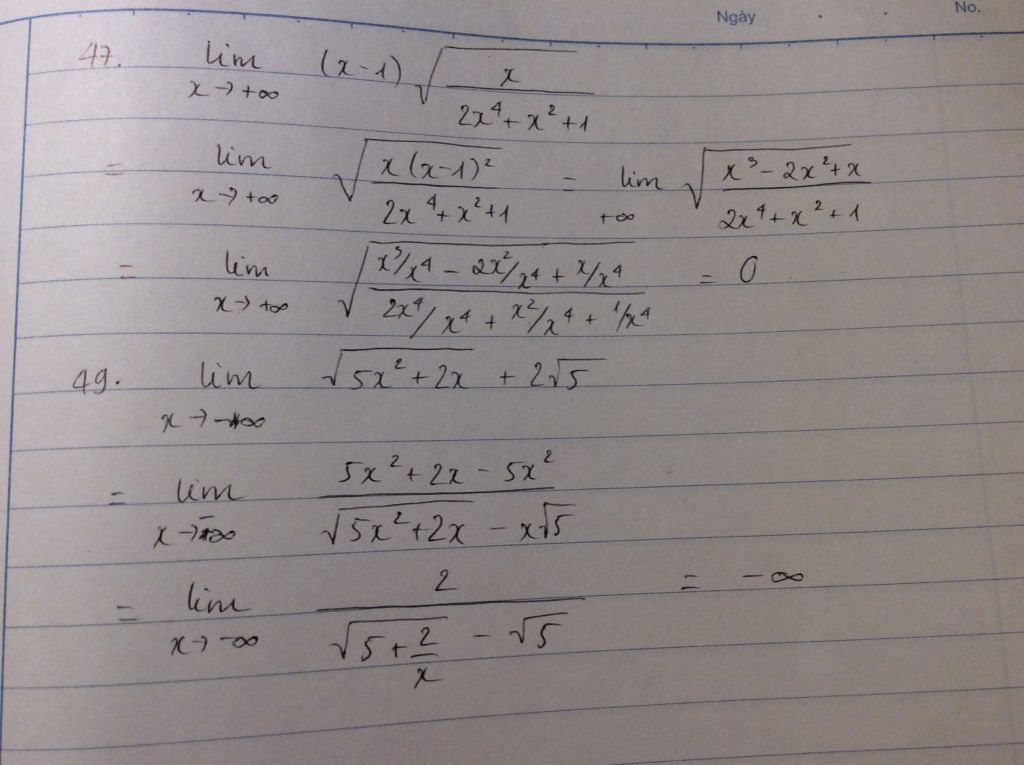 Ngày . . No.
47. lim x→+∞ (x-1) √(x / (2x⁴+x²+1))
= lim x→+∞ √(x(x-1)² / (2x⁴+x²+1)) = lim +∞ √((x³-2x²+x) / (2x⁴+x²+1))
= lim x→+∞ √((x³/x⁴ - 2x²/x⁴ + x/x⁴) / (2x⁴/x⁴ + x²/x⁴ + 1/x⁴)) = 0
49. lim x→-∞ √(5x²+2x) + 2√5
= lim x→-∞ (5x²+2x-5x²) / (√(5x²+2x) - x√5)
= lim x→-∞ 2 / (√(5+2/x) - √5) = -∞